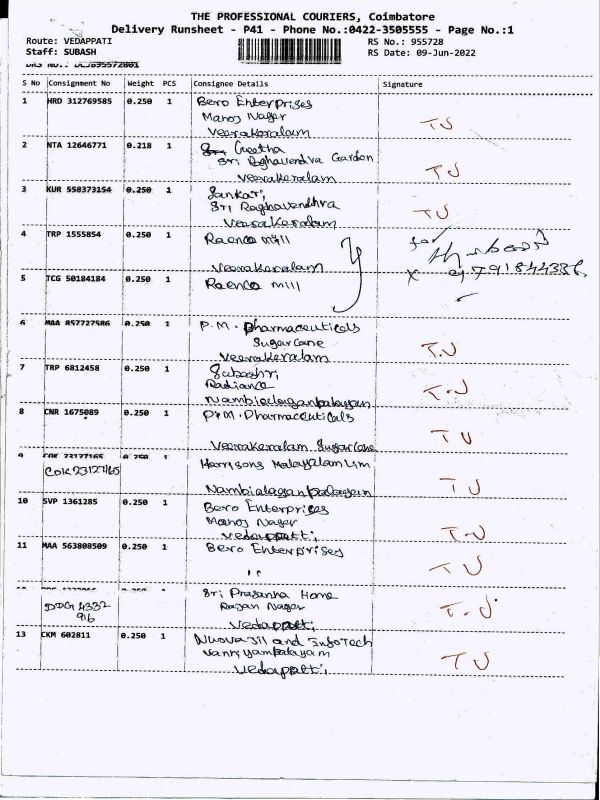 THE PROFESSIONAL COURIERS, Coimbatore
Delivery Runsheet - P41 - Phone No.:0422-3505555 - Page No.:1
Route: VEDAPPATI
Staff: SUBASH
RS No.: 955728
RS Date: 09-Jun-2022
S No Consignment No Weight PCS Consignee Details Signature
1 HRD 312769585 0.250 1 Bero Enterprises
Manoj Nagar
Veerakeralam
TJ
2 NTA 12646771 0.218 1 Geetha
Sri Raghavendra Garden
Veerakeralam
TJ
3 KUR 558373154 0.250 1 Sankari,
Sri Raghavendhra
Veerakeralam
TJ
4 TRP 1555854 0.250 1 Raenco mill
Veerakeralam
5 TCG 50184184 0.250 1 Raenco mill
6 MAA 857727586 0.250 1 P.M. Pharmaceuticals
Sugar Cane
Veerakeralam
T.J
7 TRP 6812458 0.250 1 Sabashri
Radiance
Nambialaganpalayam
T.J
8 CNR 1675089 0.250 1 P.M. Pharmaceuticals
Veerakeralam Sugar Cane
TJ
9 COK 23127165 0.250 1 Harrisons Malayalam Lim
COK 23127165
Nambialaganpalayam
TJ
10 SVP 1361285 0.250 1 Bero Enterprices
Manoj Nagar
Vedappatti,
T.J
11 MAA 563808509 0.250 1 Bero Enterprises
"
TJ
Sri Prasanna Home
DDG 4332
916
Rajan Nagar
Vedappatti,
T.J
13 CKM 602811 0.250 1 Nuova Jil and InfoTech
Vanniyampalayam
Vedappatti,
TJ